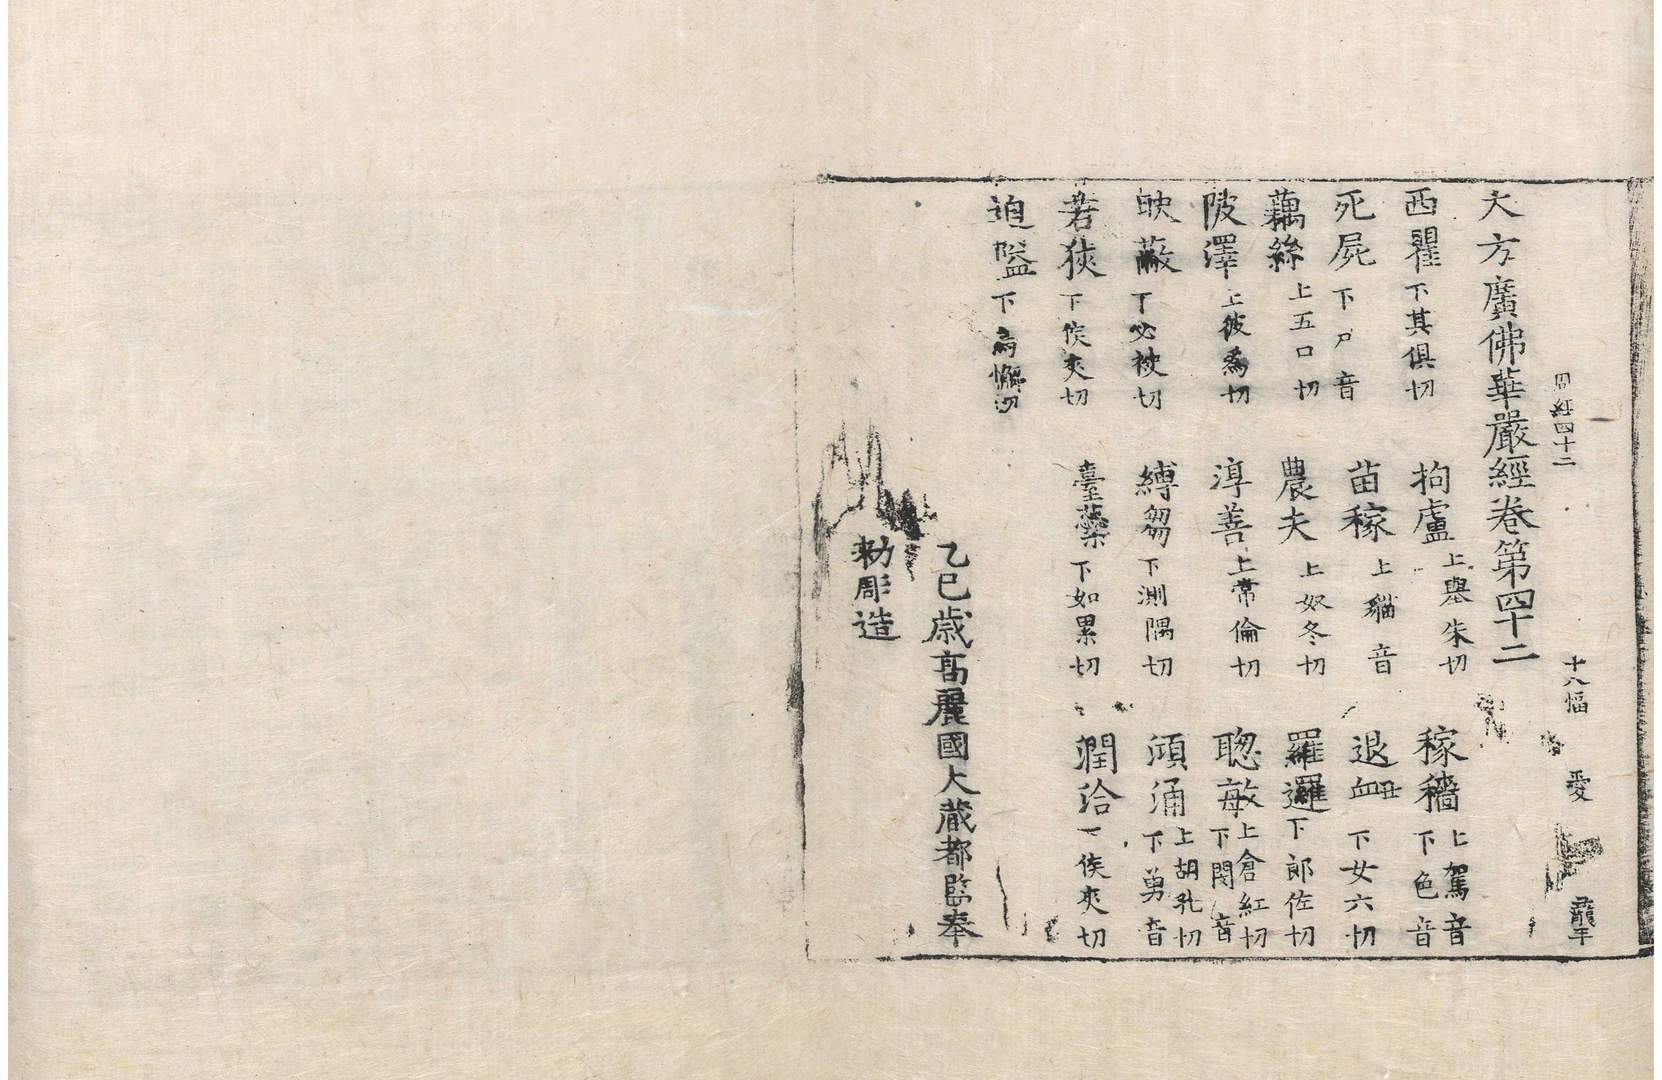 周經四十二 十八幅 愛
大方廣佛華嚴經卷第四十二
西瞿下其俱切 拘盧上舉朱切 稼穡上駕音下色音
死屍下尸音 苗稼上貓音 衂下女六切
藕絲上五口切 農夫上奴冬切 羅邏下郎佐切
陂澤上彼爲切 淳善上常倫切 聦敏上倉紅切下閔音
映蔽丁必袂切 縛芻下測隅切 澒涌上胡孔切下勇音
狹下侯夾切 臺蘂下如累切 潤洽侯夾切
迫隘下切
乙巳歲高麗國大藏都監奉
勑彫造